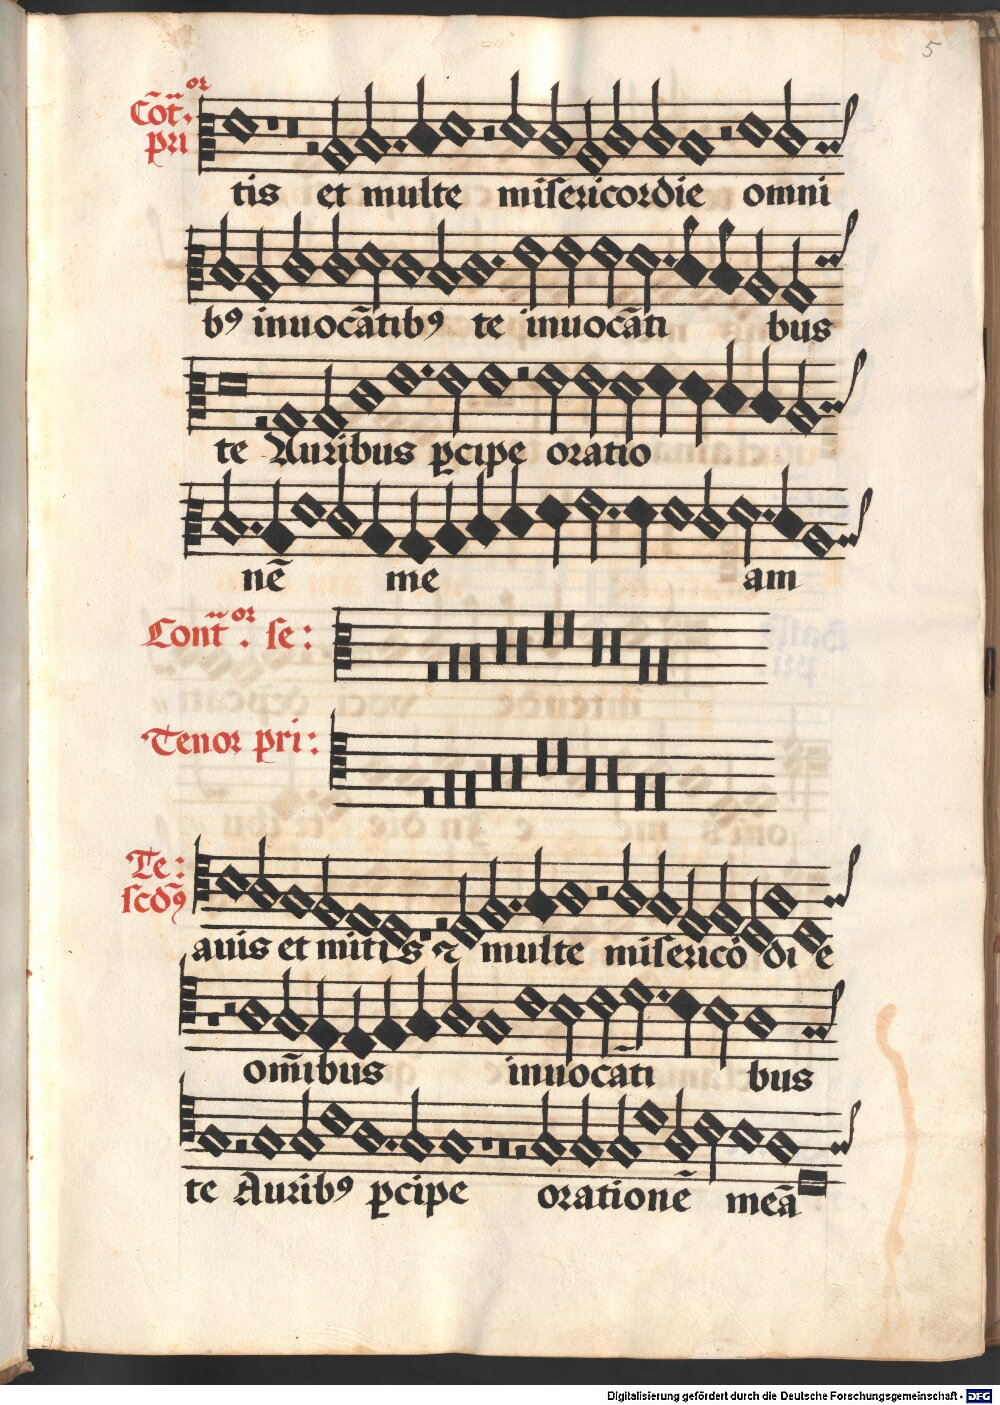 5
Cōt.or
pri
tis et multe misericordie omni
bꝰ inuocātibꝰ te inuocāti bus
te Auribus ꝑcipe oratio
nē me am
Cont.or se:
Tenor pri:
Te:
scd̄ꝰ
auis et mitis ⁊ multe misericordi e
om̄ibus inuocāti bus
te Auribꝰ ꝑcipe orationē meā
Digitalisierung gefördert durch die Deutsche Forschungsgemeinschaft - DFG